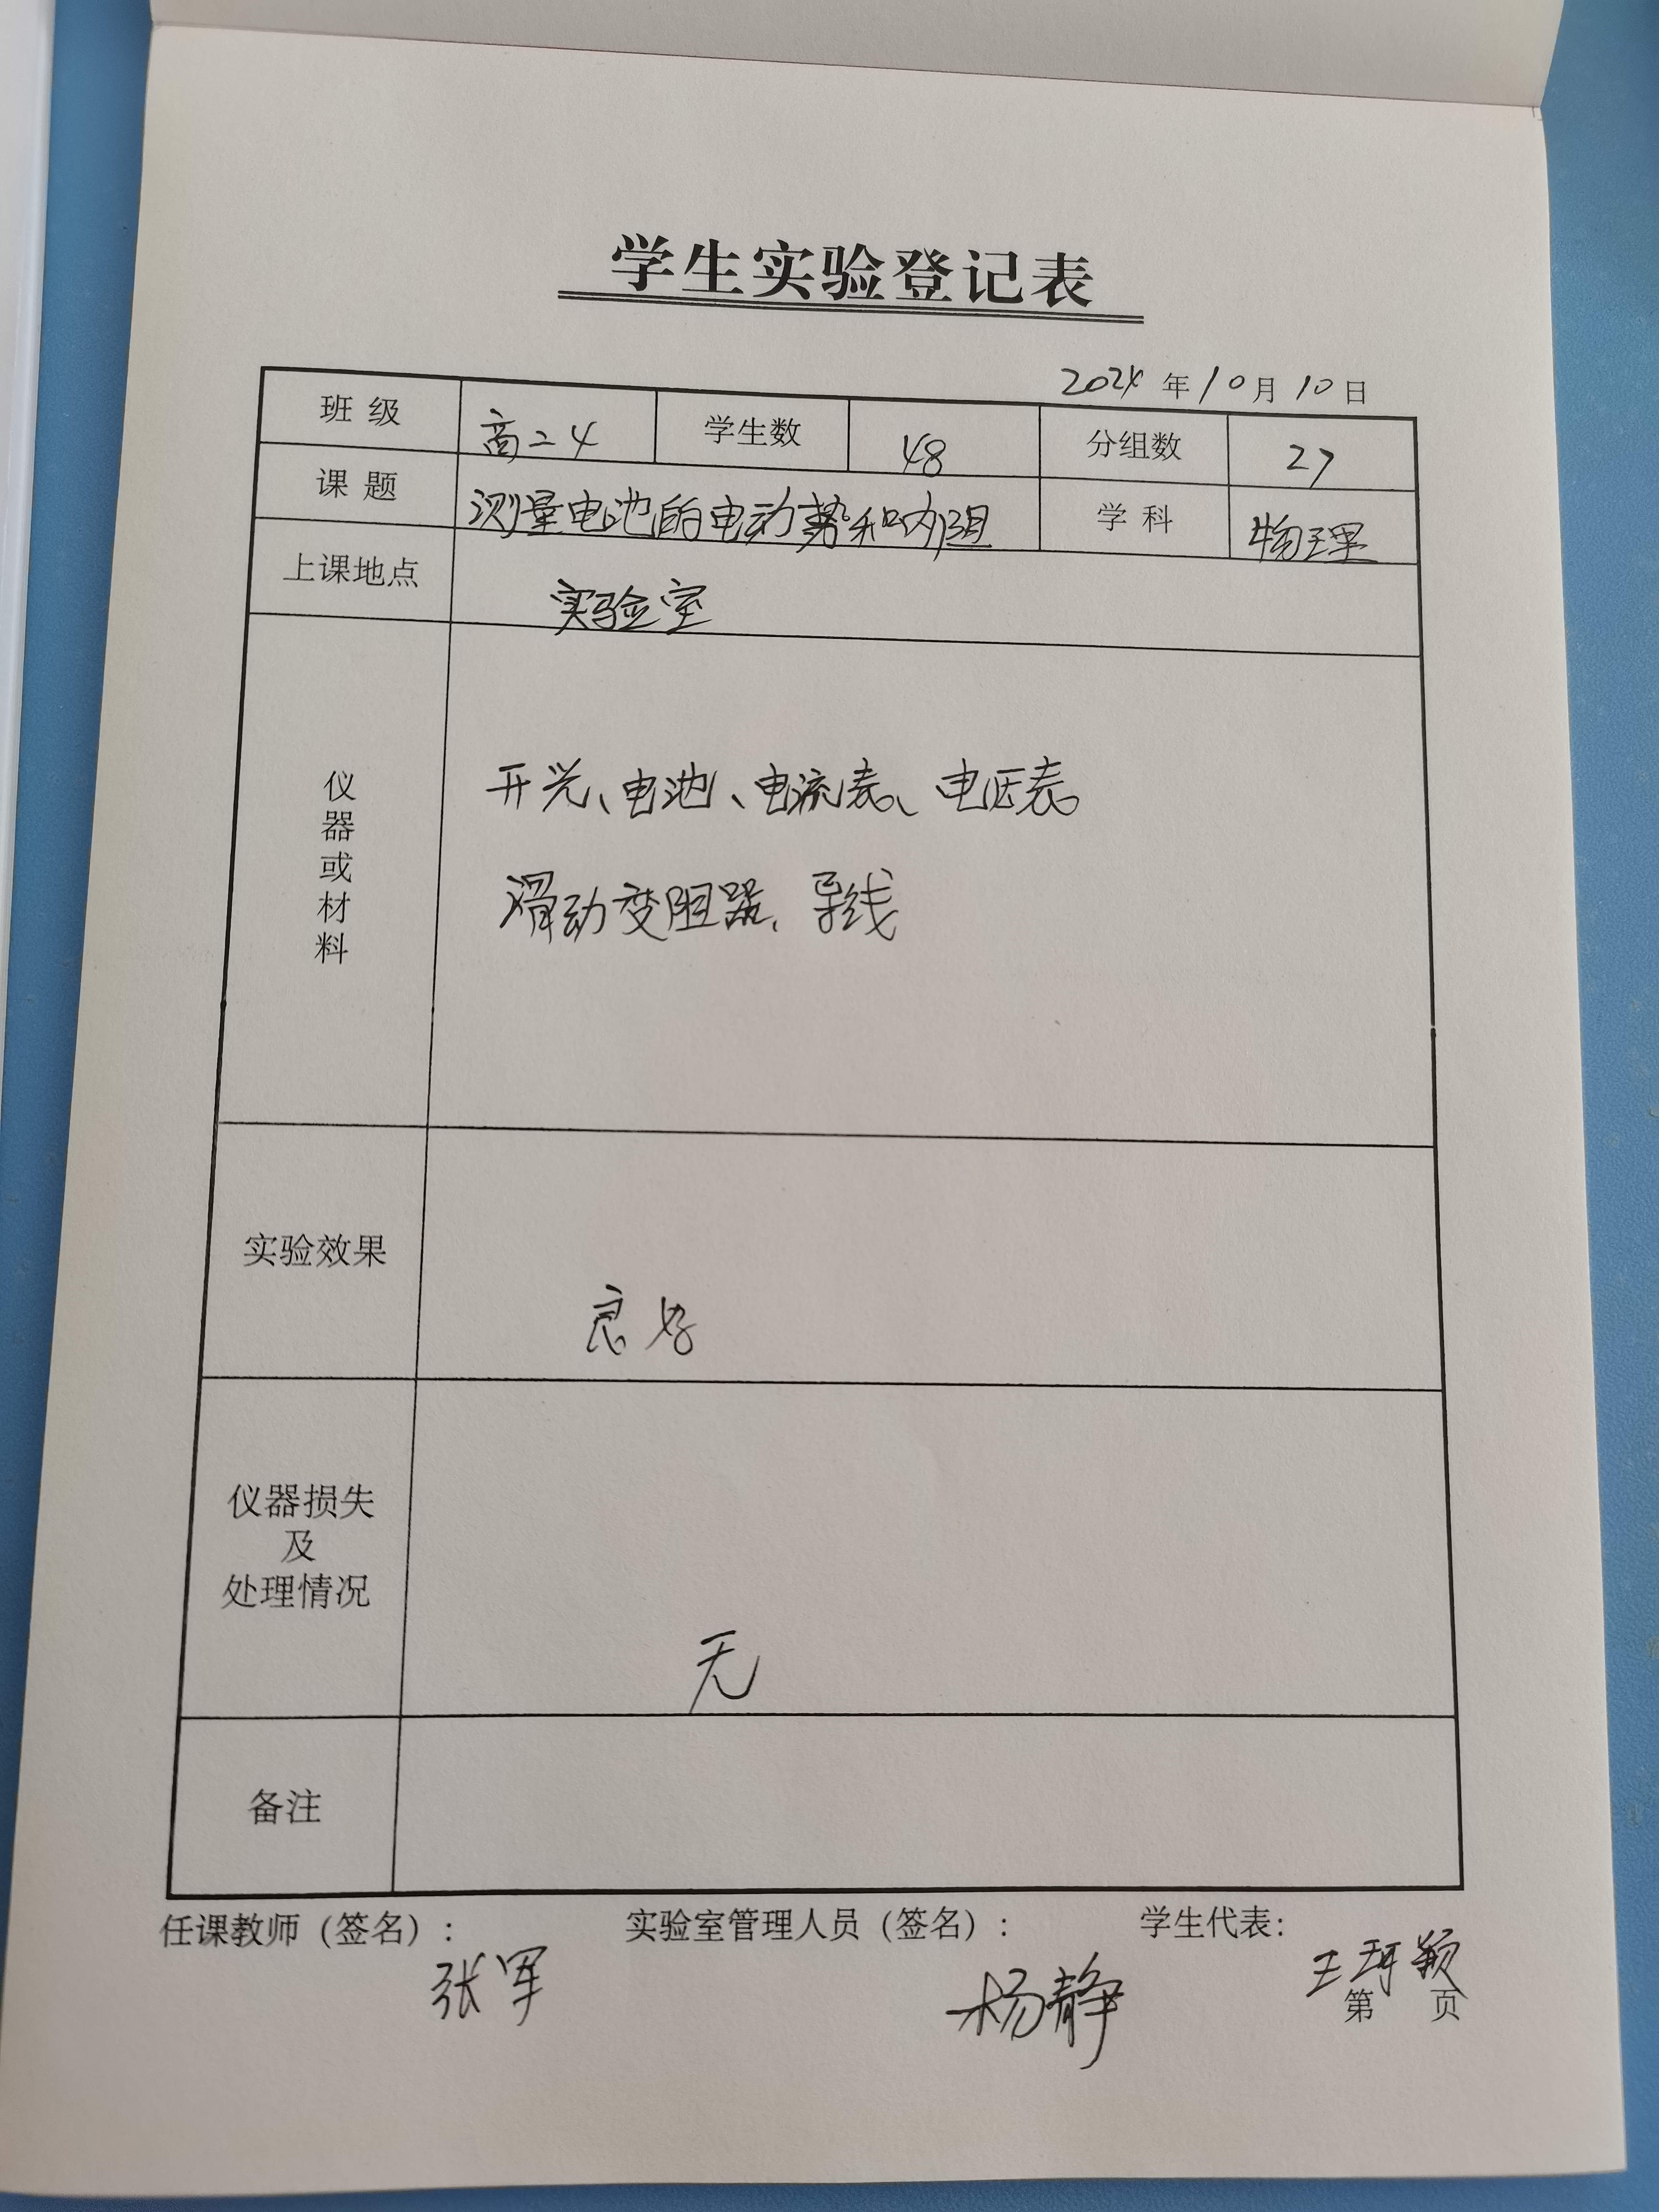 学生实验登记表
2024 年 10 月 10 日
班 级 高二4 学生数 48 分组数 27
课 题 测量电池的电动势和内阻 学 科 物理
上课地点 实验室
仪器或材料
开关、电池、电流表、电压表
滑动变阻器、导线
实验效果
良好
仪器损失
及
处理情况
无
备注
任课教师（签名）： 实验室管理人员（签名）： 学生代表：
张军 杨静 王珂颖
第 页